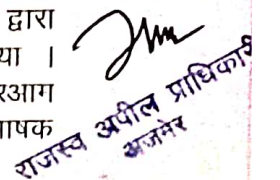 द्वारा
या ।
रआग
राजस्व अपील प्राधिकारी
अजमेर